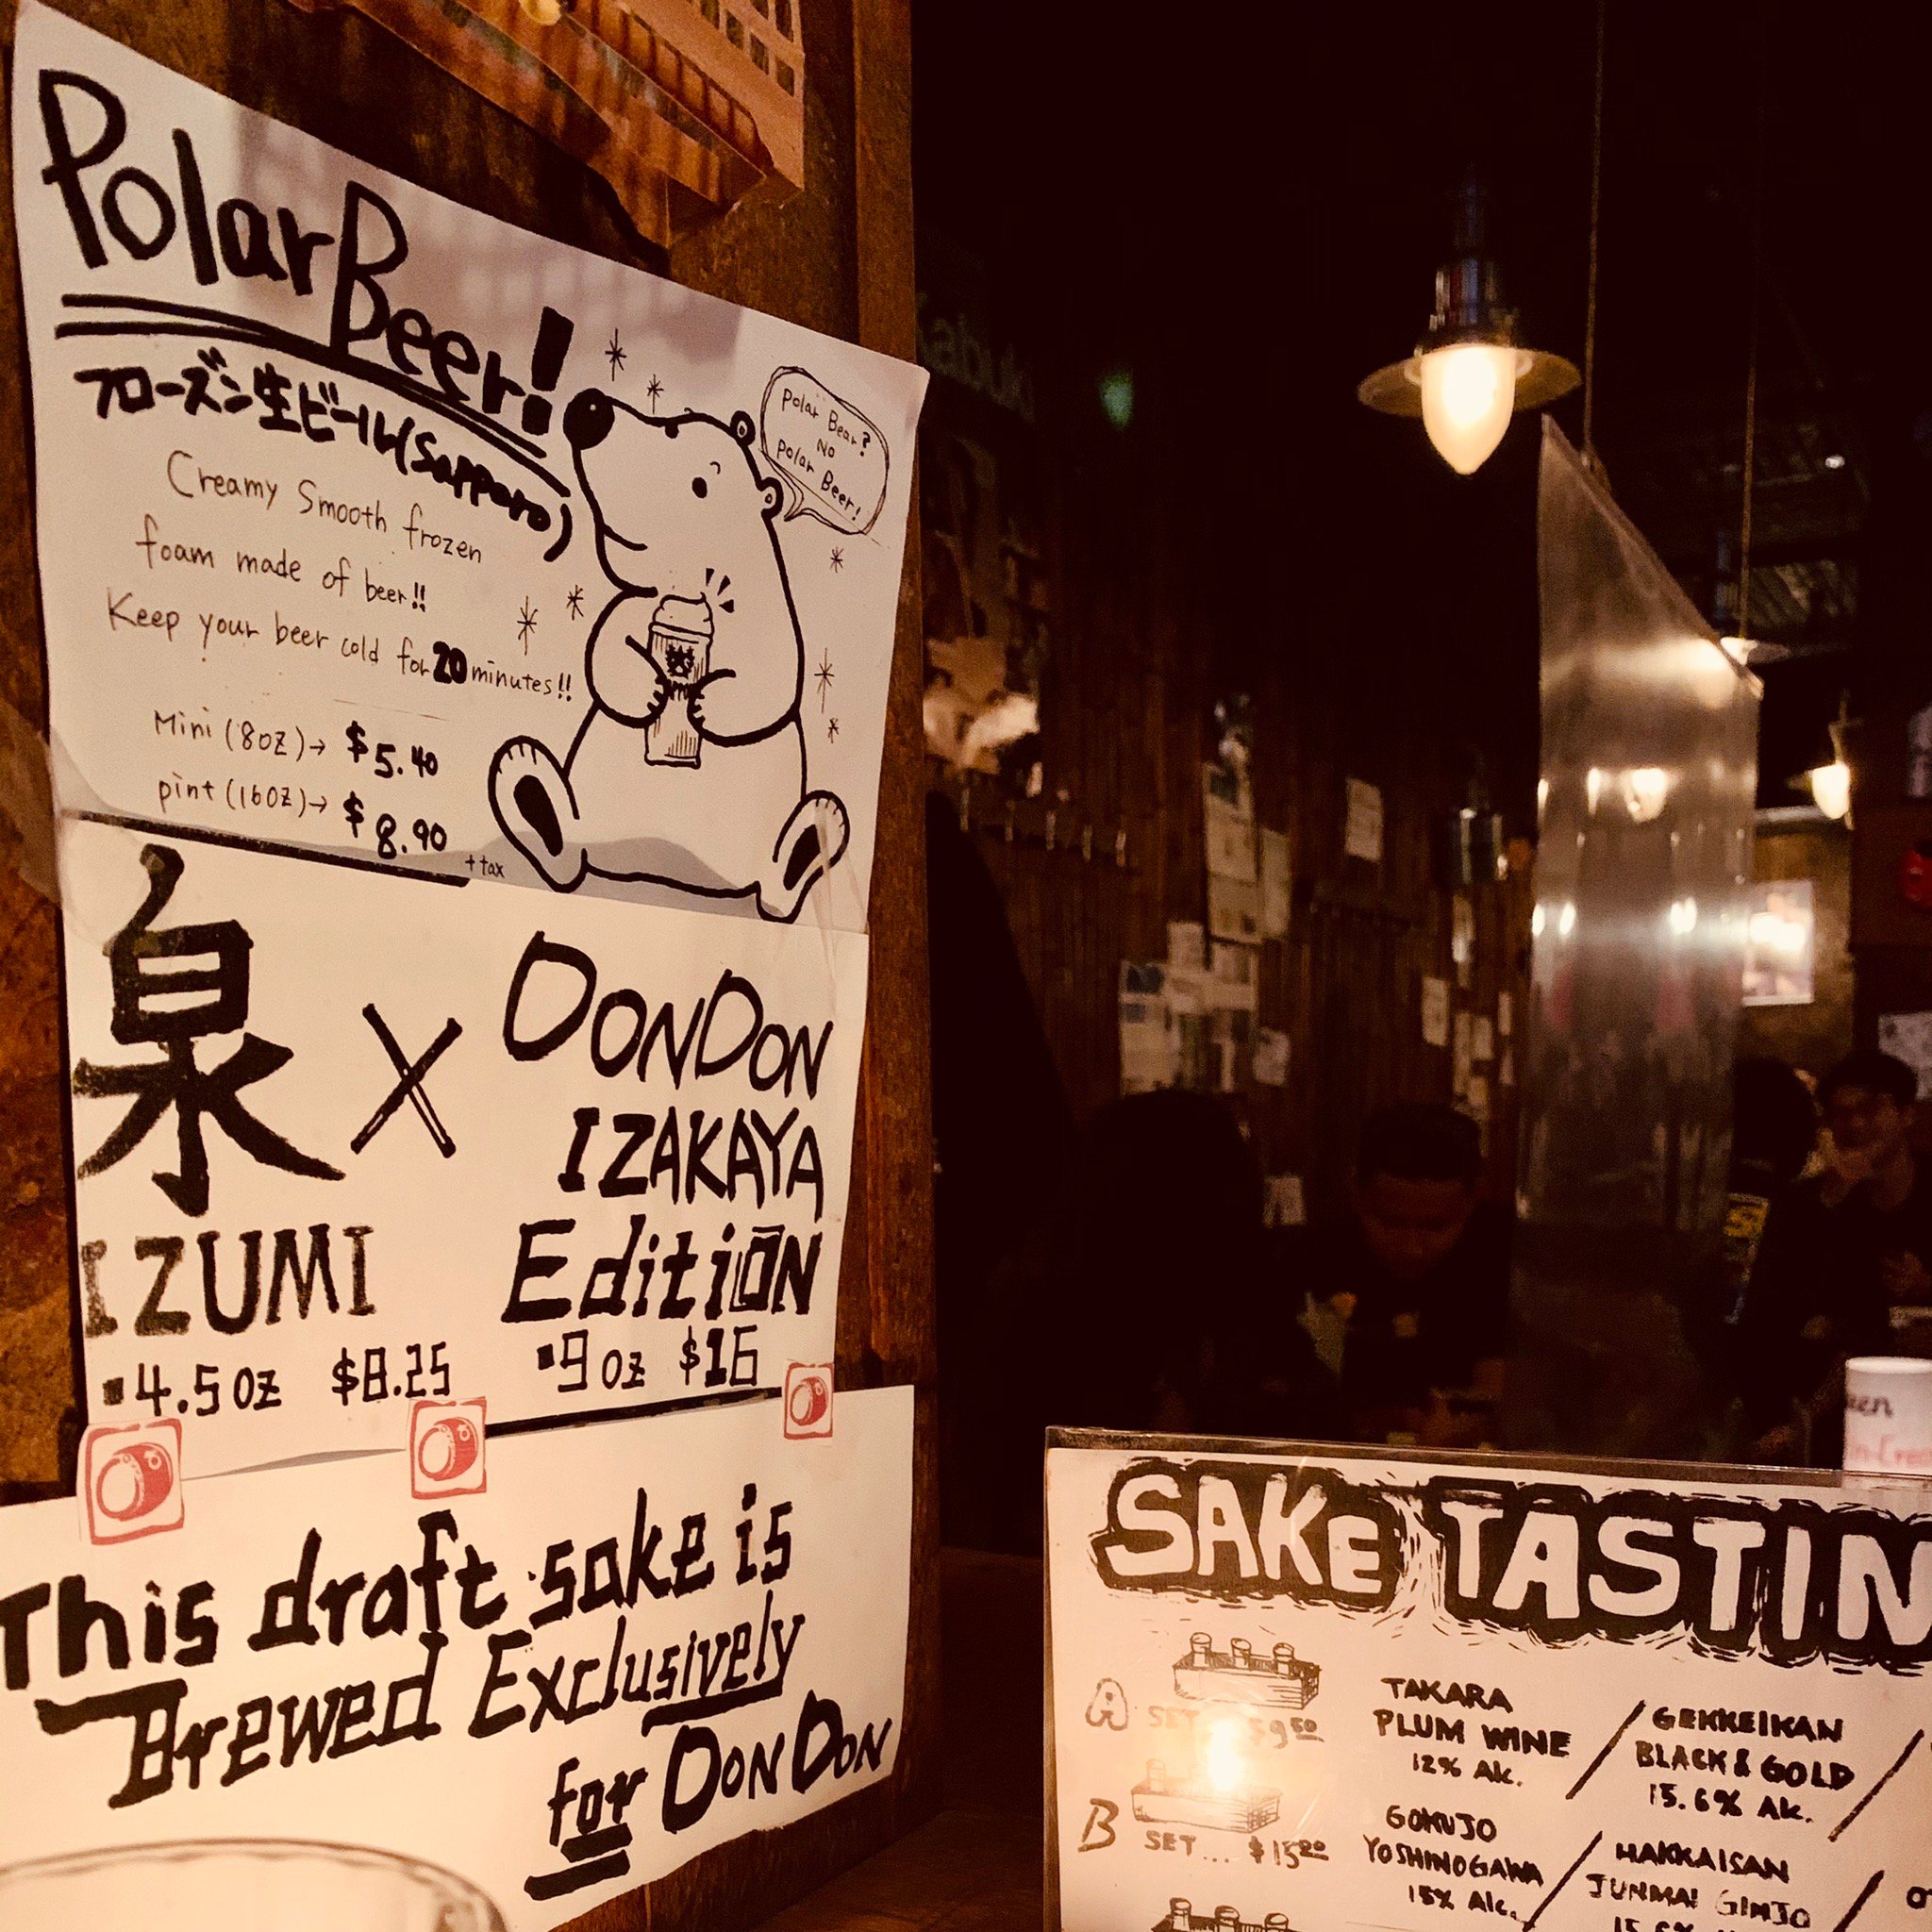 Polar Beer!
フローズン生ビール(Sapporo)
Creamy Smooth frozen
foam made of beer!!
Keep your beer cold for 20 minutes!!
Mini (8oz)→ $5.40
pint (16oz)→ $8.90
+ tax
Polar Bear?
No
polar Beer!
泉 × DONDON
IZAKAYA
IZUMI Edition
▪4.5oz $8.25 ▪9oz $16
This draft sake is
Brewed Exclusively
for DON DON
SAKE TASTIN
A SET... $9.50
TAKARA
PLUM WINE
12% Alc.
GEKKEIKAN
BLACK & GOLD
15.6% Alc.
B SET... $15.20
GOKUJO
YOSHINOGAWA
15% Alc.
HAKKAISAN
JUNMAI GINJO
15.5%